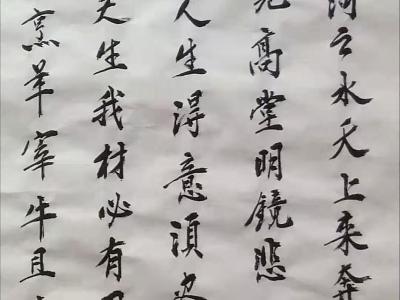 河之水天上来奔
見高堂明鏡悲
人生得意須
天生我材必有
烹羊宰牛且